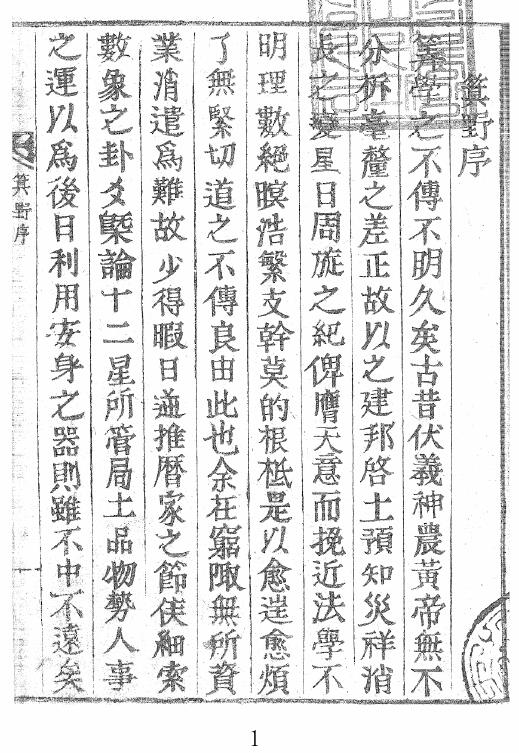 箕野序
筭學之不傳不明久矣古昔伏羲神農黃帝無不
分析毫釐之差正故以之建邦啓土預知災祥消
長之變星日周旋之紀俾膺天意而挽近法學不
明理數絕瞑浩繁支幹莫的根柢是以愈迬愈煩
了無緊切道之不傳良由此也余在窮陬無所資
業消遣爲難故少得暇日遍推曆家之節侯細索
數象之卦爻槩論十二星所管局土品物勢人事
之運以爲後日利用安身之器則雖不中不遠矣
箕野序
1